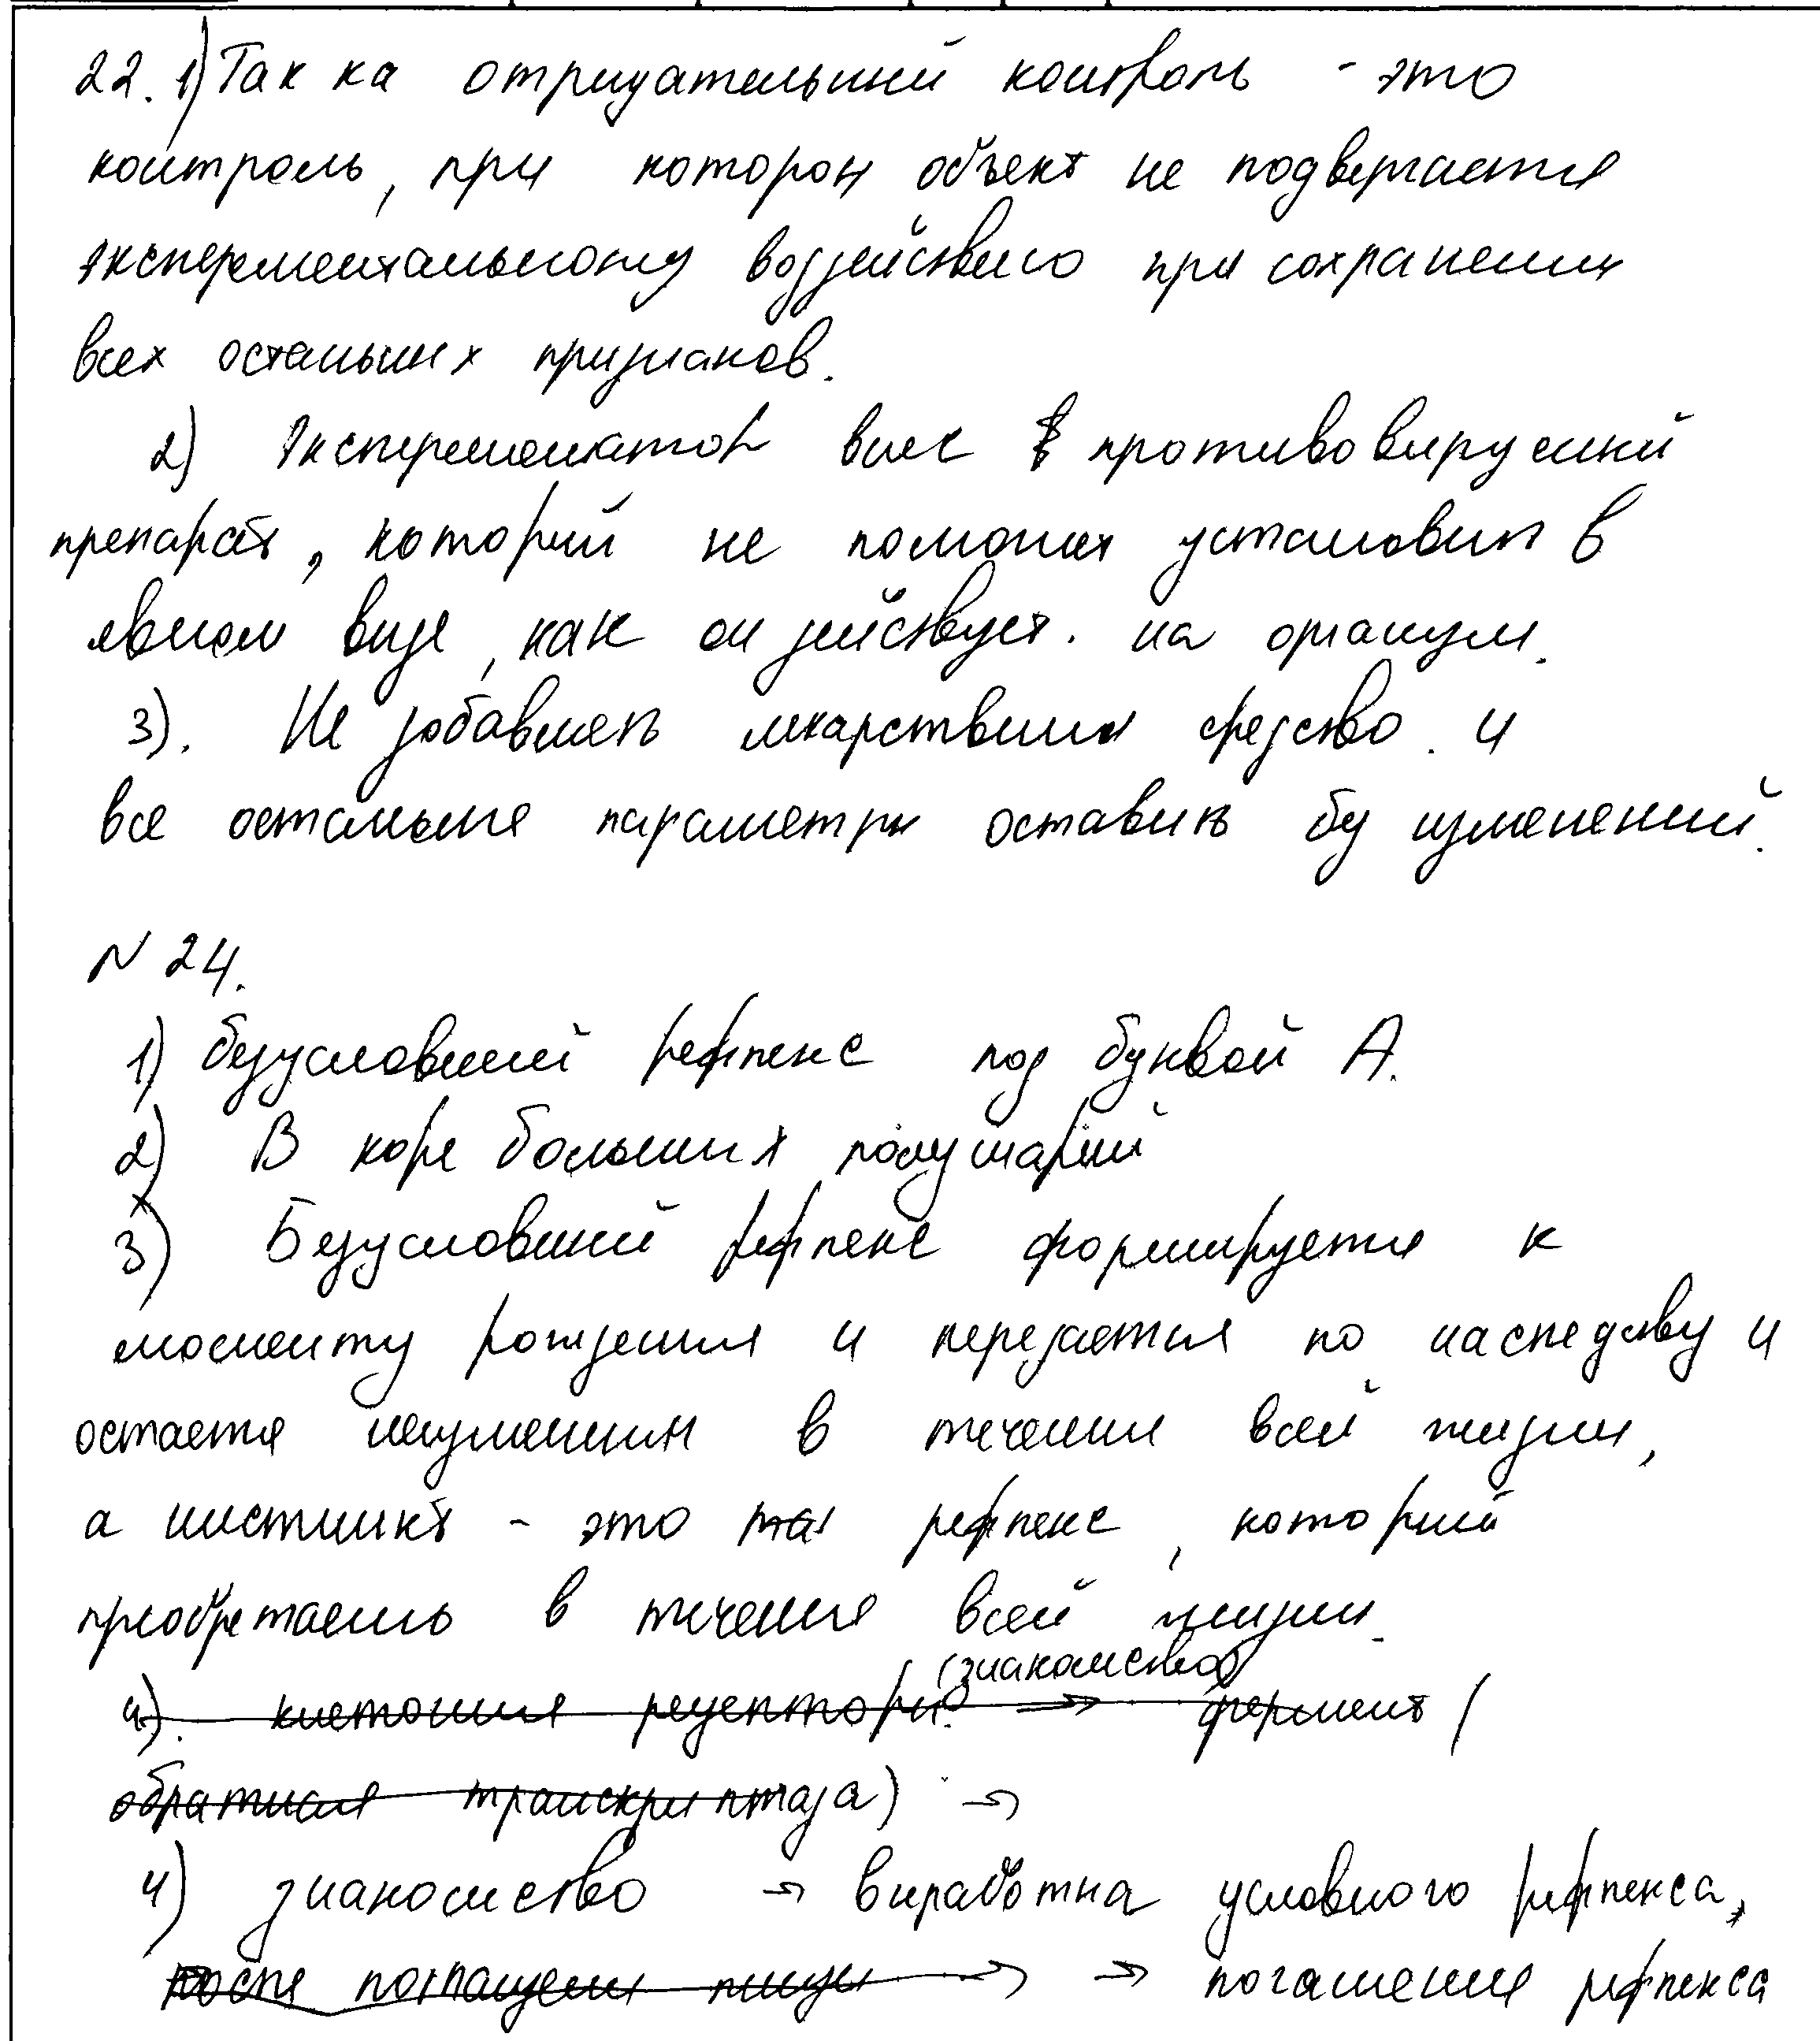 22. 1) Так ка отрицательный контроль - это
контроль, при котором объект не подвергается
эксперементальному воздействию при сохранении
всех остальных признаков.
2) Эксперементатор внес противовирусный
препарат, который не поможет установить в
явном виде, как он действует. на организм.
3). Не добавлять лекарственных средство. и
все остальные параметры оставить без изменений.
N 24.
1) безусловный рефлекс под буквой А.
2) В коре больших полушарий
3) Безусловный рефлекс формируется к
моменту рождения и передается по наследству и
остается неизменным в течении всей жизни,
а инстинкт - это рефлекс, который
приобретаешь в течение всей жизни.
(знакомство)
4). клеточные рецепторы. → фермент (
обратная транскриптаза) →
4) знакомство → выработка условного рефлекса,
после поглащения пищи → → погашение рефлекса